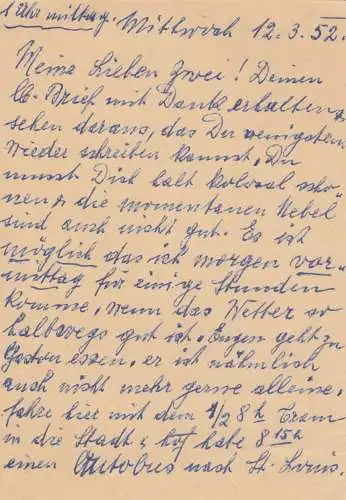 1 Uhr mittag. Mittwoch 12.3.52.
Meine Lieben Zwei! Deinen
lb. Brief mit Dank erhalten,
sehen daraus, das Du wenigstens
wieder schreiben kannst. Du
musst Dich halt kolossal scho-
nen, die momentanen Nebel
sind auch nicht gut. Es ist
möglich das ich morgen vor-
mittag für einige Stunden
komme, wenn das Wetter so
halbwegs gut ist. Eugen geht zu
Gaston essen, er ist nähmlich
auch nicht mehr gerne alleine.
fahre hier mit dem 1/2 8h Tram
in die Stadt & habe 8 15h
einen Autobus nach St. Louis.